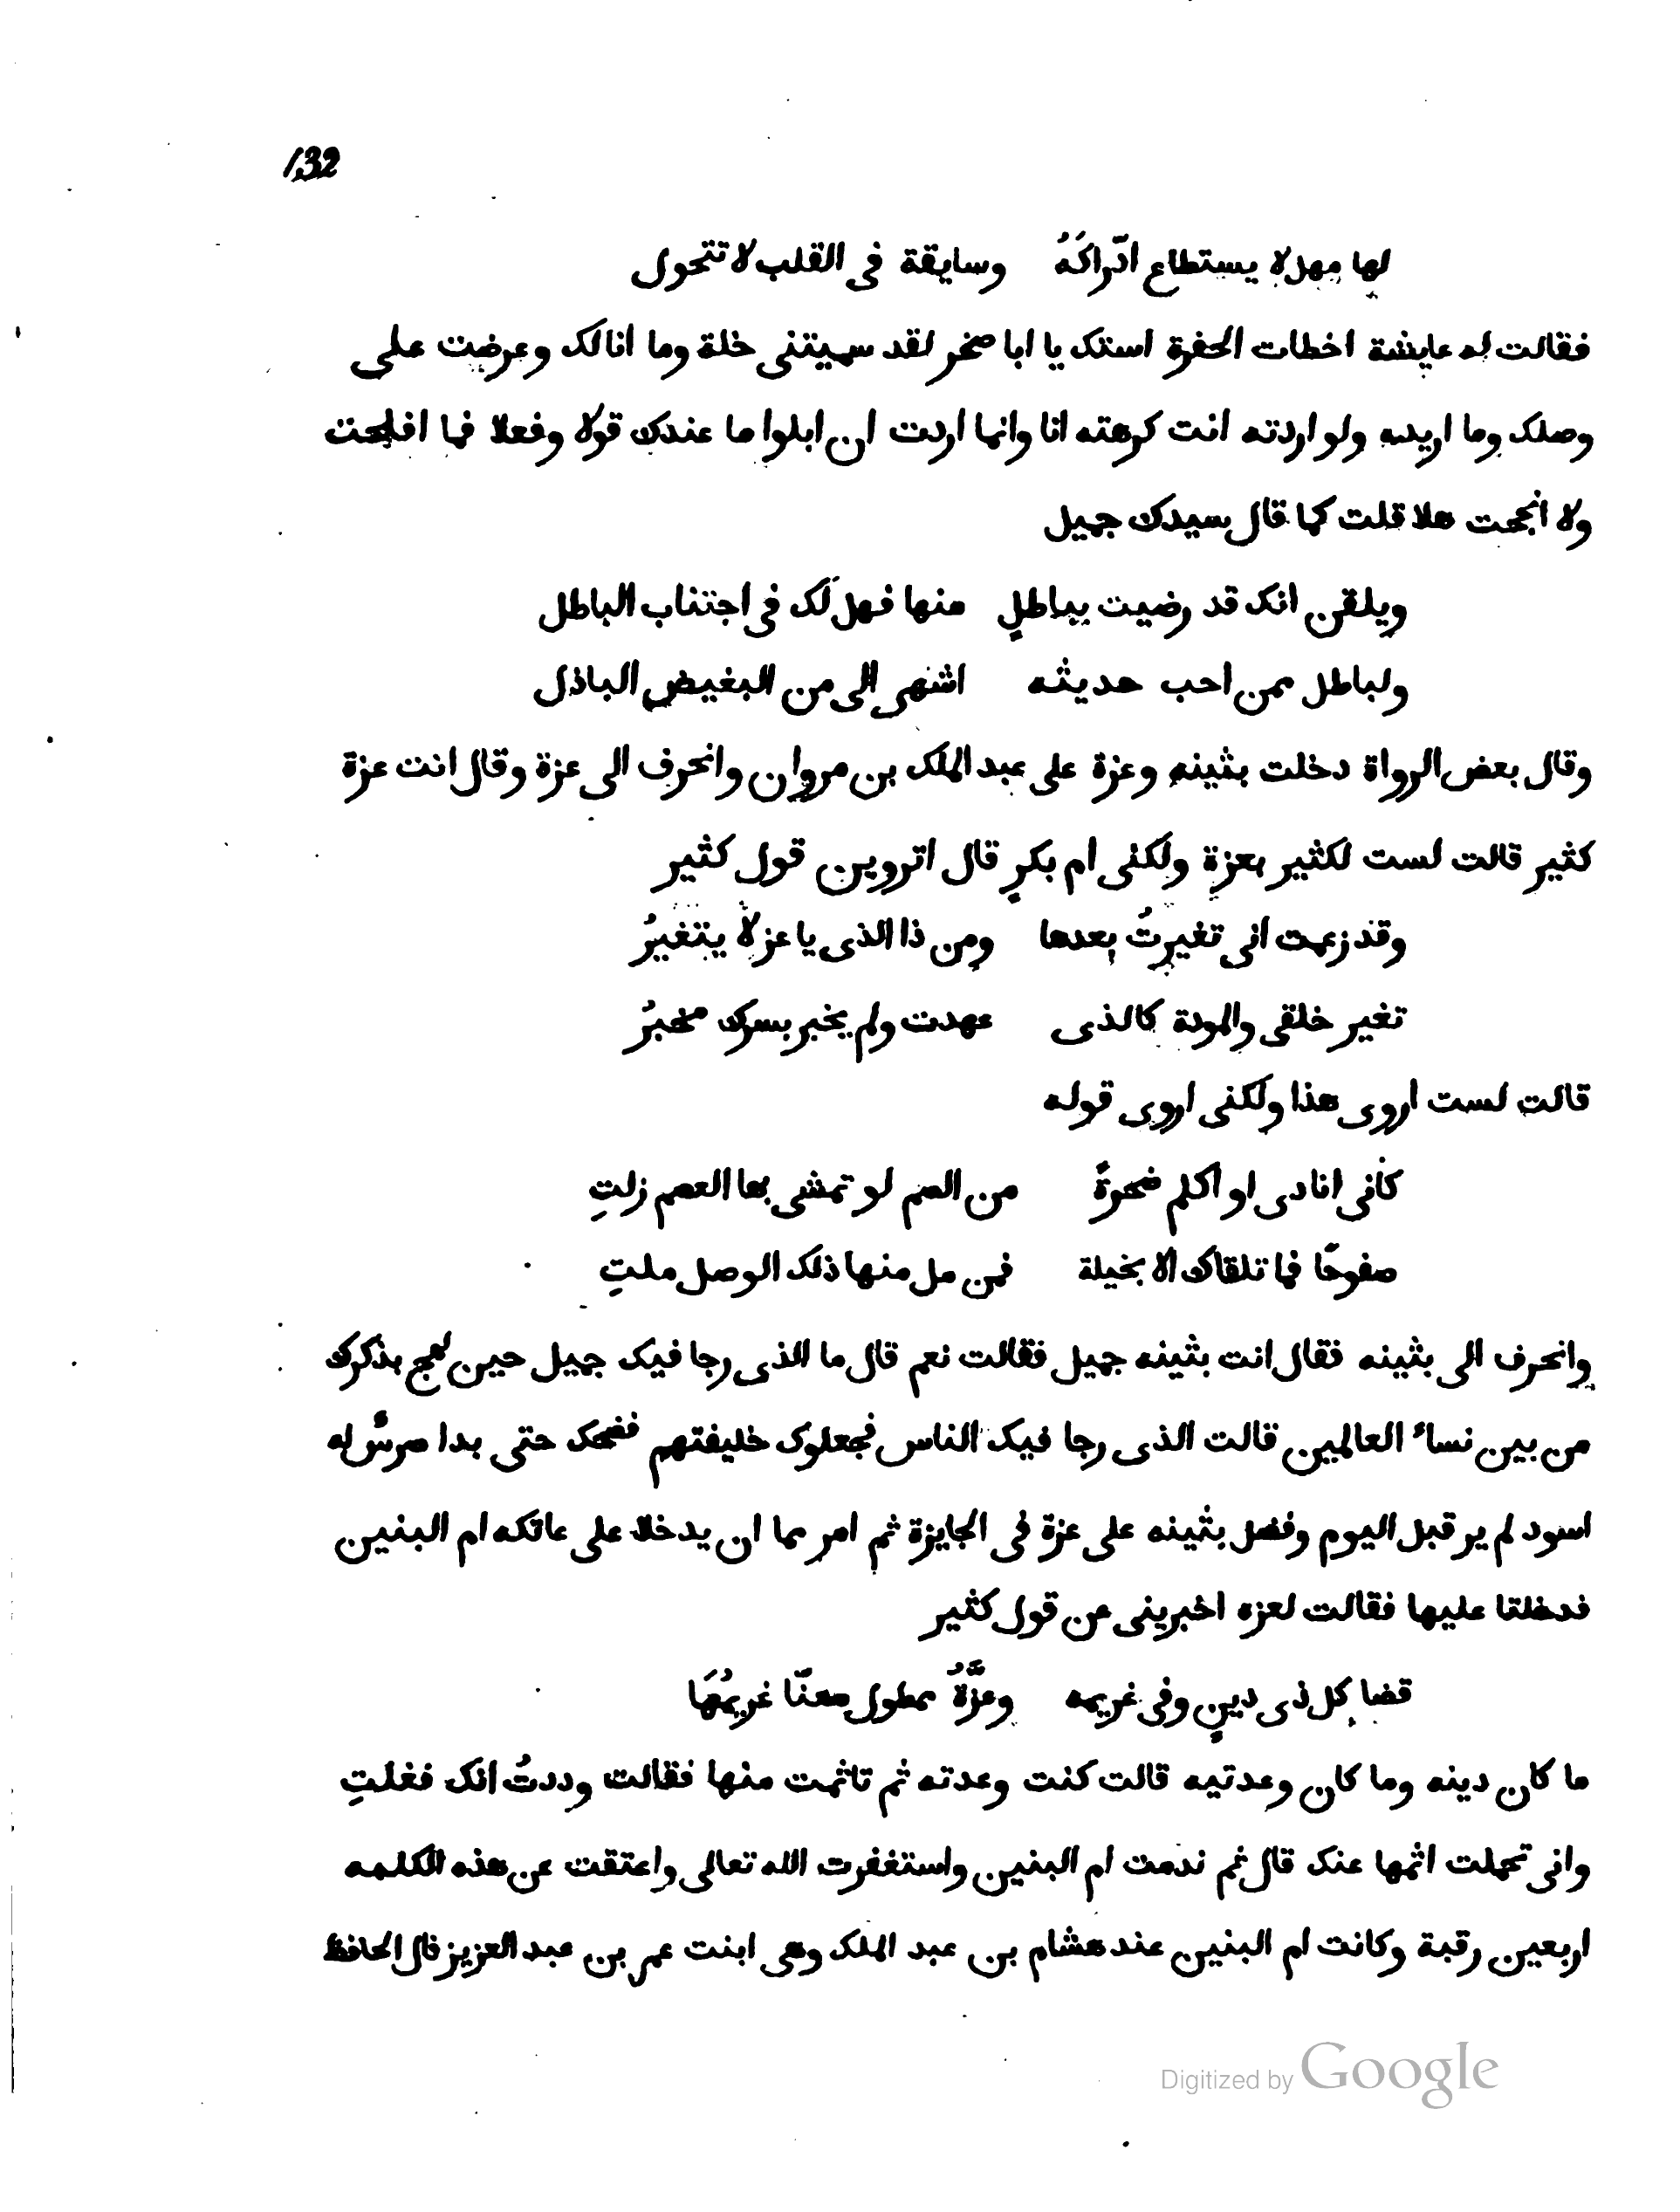 132
لها مهل لا يستطاع ادّراكَهُ وسايقة فى القلب لا تتحول
فقالت له عايشة اخطات الحفرة استك يا ابا صخر لقد سميتنى خلة وما انا لك وعرضت على
وصلك وما اريده ولو اردته انت كرهته انا وانما اردت ان ابلوا ما عندك قولا وفعلا فما افلحت
ولا انجحت هلا قلت كما قال سيدك جميل
ويلقن انك قد رضيت بباطلٍ منها فهل لَك فى اجتناب الباطل
ولباطل ممن احب حديثه اشهى الى من البغيض الباذل
وقال بعض الرواة دخلت بثينه وعزة على عبد الملك بن مروان وانحرف الى عزة وقال انت عزة
كثير قالت لست لكثير بعزة ولكنى ام بكرٍ قال اتروين قول كثير
وقد زعمت انى تغيرتُ بعدها ومن ذا الذى يا عز لا يتغيرُ
تغير خلقى والمودة كالذى عهدت ولم يخبر بسرك مخبرُ
قالت لست اروى هذا ولكنى اروى قوله
كأنى انادى او اكلم صخرةً من الصم لو تمشى بها العصم زلتِ
صفوحًا فما تلقاك الا بخيلة فمن مل منها ذلك الوصل ملتِ
وانحرف الى بثينه فقال انت بثينه جميل فقالت نعم قال ما الذى رجا فيك جميل حين لهج بذكرك
من بين نساء العالمين قالت الذى رجا فيك الناس فجعلوك خليفتهم فضحك حتى بدا ضرسٌ له
اسود لم ير قبل اليوم وفضل بثينه على عزة فى الجايزة ثم امر هما ان يدخلا على عاتكه ام البنين
فدخلتا عليها فقالت لعزه اخبرينى عن قول كثير
قضا كل ذى دينٍ وفى غريمه وعزَّةُ ممطول معنّا غريمُهَا
ما كان دينه وما كان وعدتيه قالت كنت وعدته ثم تاثمت منها فقالت وددتُ انك فعلتِ
وانى تحملت اثمها عنك قال ثم ندمت ام البنين واستغفرت الله تعالى واعتقت عن هذه الكلمه
اربعين رقبة وكانت ام البنين عند هشام بن عبد الملك وهى ابنت عمر بن عبد العزيز قال الحافظ
Digitized by Google